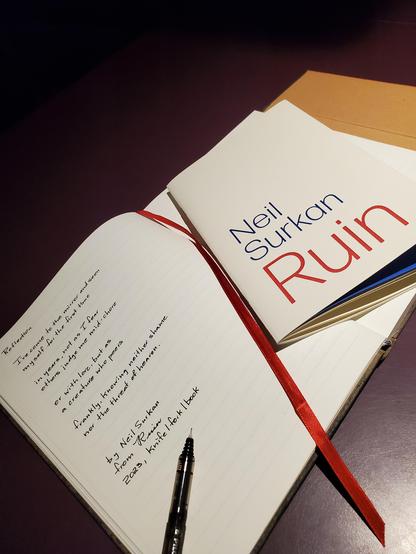 Reflection
I've come to the mirror and seen
myself for the first time
in years, not as I fear
others judge me mid-chore
or with lac, but as
a creature who peers
frankly, knowing neither shame
nor the threat of heaven.
by Neil Surkan
from Ruin
2023, knife|fork|book
Neil
Surkan
Ruin